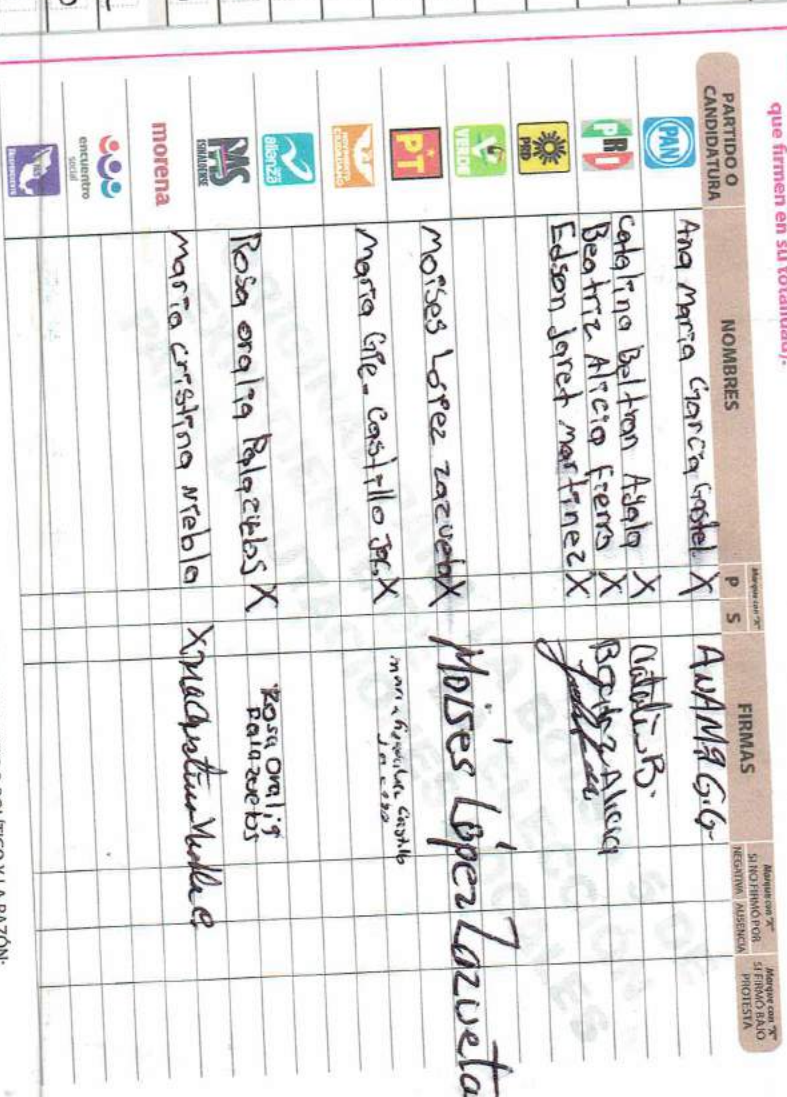 que firmen en su totalidad).
PARTIDO O CANDIDATURA
NOMBRES
Marque con "X"
P S
FIRMAS
Marque con "X" SI NO FIRMÓ POR
NEGATIVA AUSENCIA
Marque con "X" SI FIRMÓ BAJO PROTESTA
PAN Ana Maria Garcia Gastel X ANAMA G.G.
PRI Catalina Beltran Ayala X Catalin B.
Beatriz Alicia fierro X Beatriz Alicia
PRD Edson Jaret Martinez X
VERDE
PT Moises Lopez zazueta X Moisés López Zazueta
CIUDADANO Maria Gpe. Castillo X maria Castillo
alianza
PAS SINALOENSE Rosa oralia Palazuelos X Rosa oralia Palazuelos
morena Maria cristina Niebla X
encuentro social
INDEPENDIENTE
POLÍTICO Y LA RAZÓN: